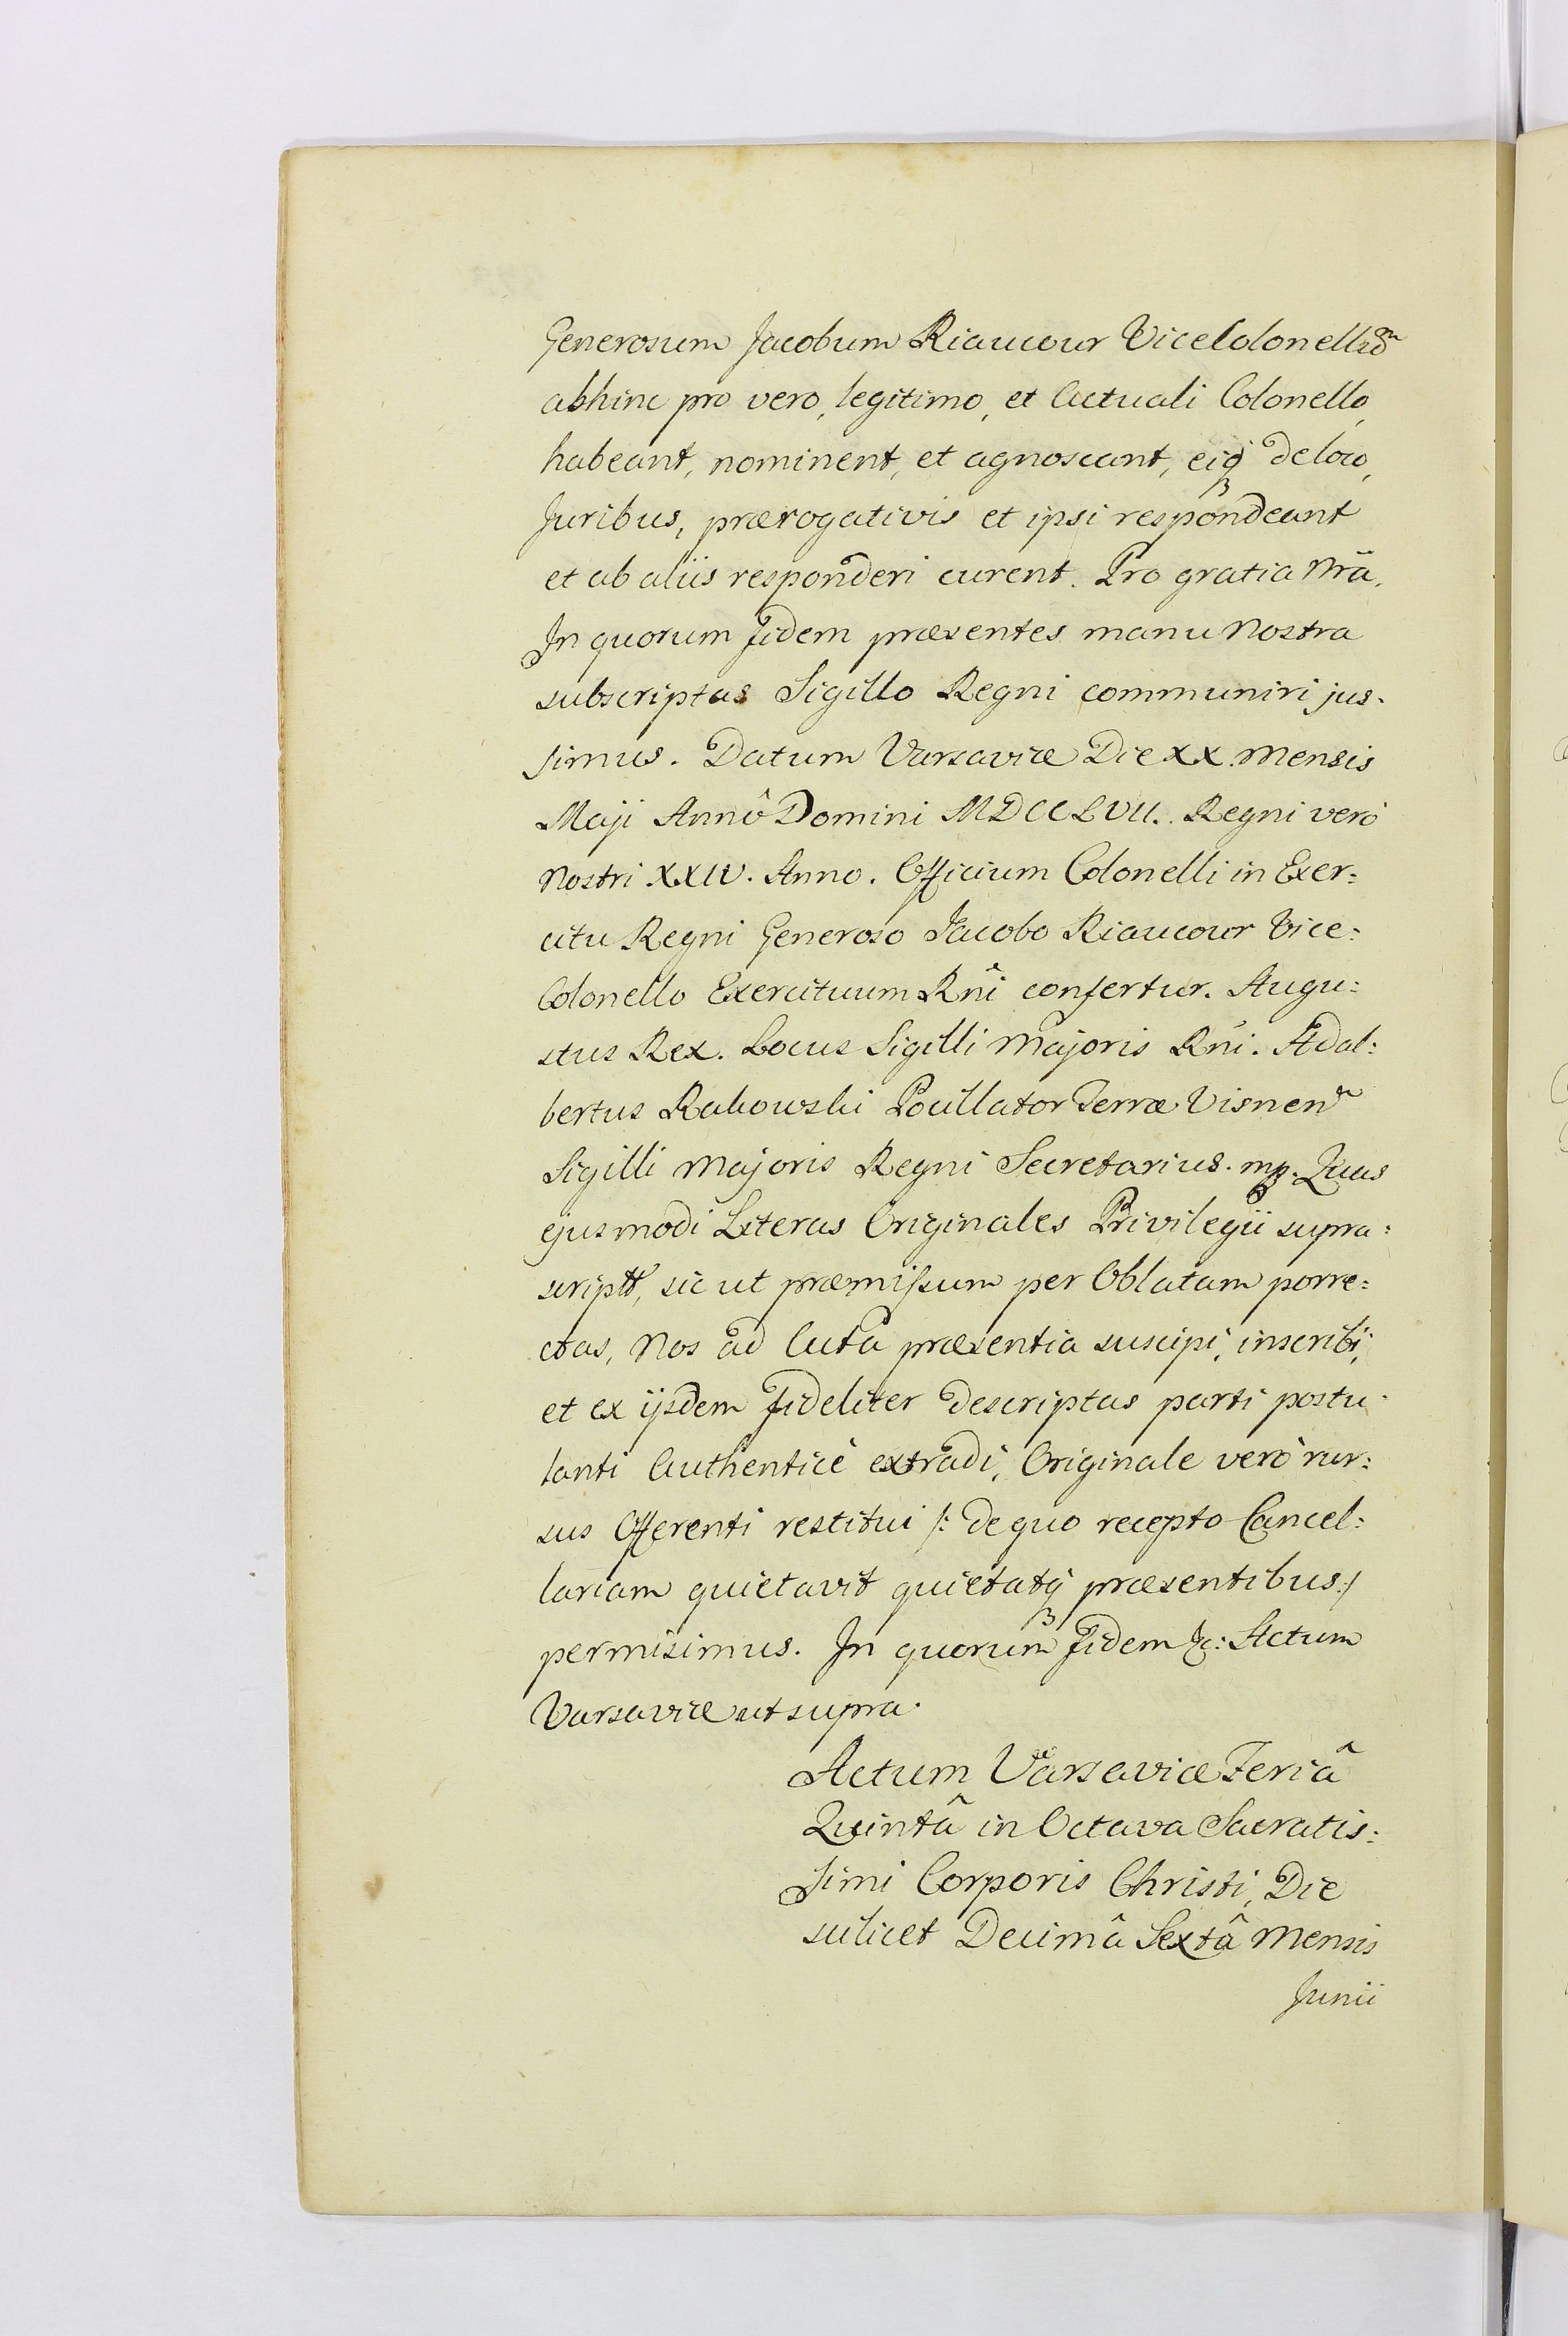 Generosum Jacobum Riaucour ViceColonellũ
abhinc pro vero, legitimo, et Actuali Colonello,
habeant, nominent, et agnoscant, eiq3 de loco,
Juribus, prærogativis et ipsi respondeant
et ab aliis responderi curent. Pro gratia Nrã.
In quorum fidem præsentes manu Nostra
subscriptas Sigillo Regni communiri jus-
simus. Datum Varsaviæ Die XX. Mensis
Maji Annô Domini MDCCLVII. Regni verò
Nostri XXIV. Anno. Officium Colonelli in Exer:
citu Regni Generoso Jacobo Riaucour Vice:
Colonello Exercituum Rñi confertur. Augu:
stus Rex. Locus Sigilli Majoris Rñi. Adal:
bertus Rakowski Pocillator Terræ Visnen̄
Sigilli Majoris Regni Secretarius. mp. Quas
ejusmodi Literas Originales Privilegii supra:
scripti, sic ut præmissum per Oblatam porre:
ctas, Nos ad Acta præsentia suscipi, inscribi,
et ex ijsdem fideliter descriptas parti postu-
lanti Authenticè extradi, Originale verò rur:
sus Offerenti restitui /: de quo recepto Cancel:
lariam quietavit quietatq3 præsentibus :/
permisimus. In quorum fidem &c: Actum
Varsaviæ ut supra.
Actum Varsaviæ Feriâ
Quintâ in Octava Sacratis:
simi Corporis Christi, Die
scilicet Decimâ Sextâ Mensis
Junii